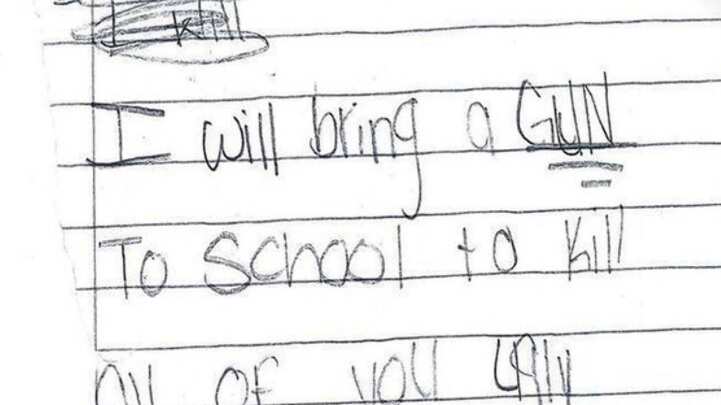 I kill
I will bring a GUN
To School to kill
All of you